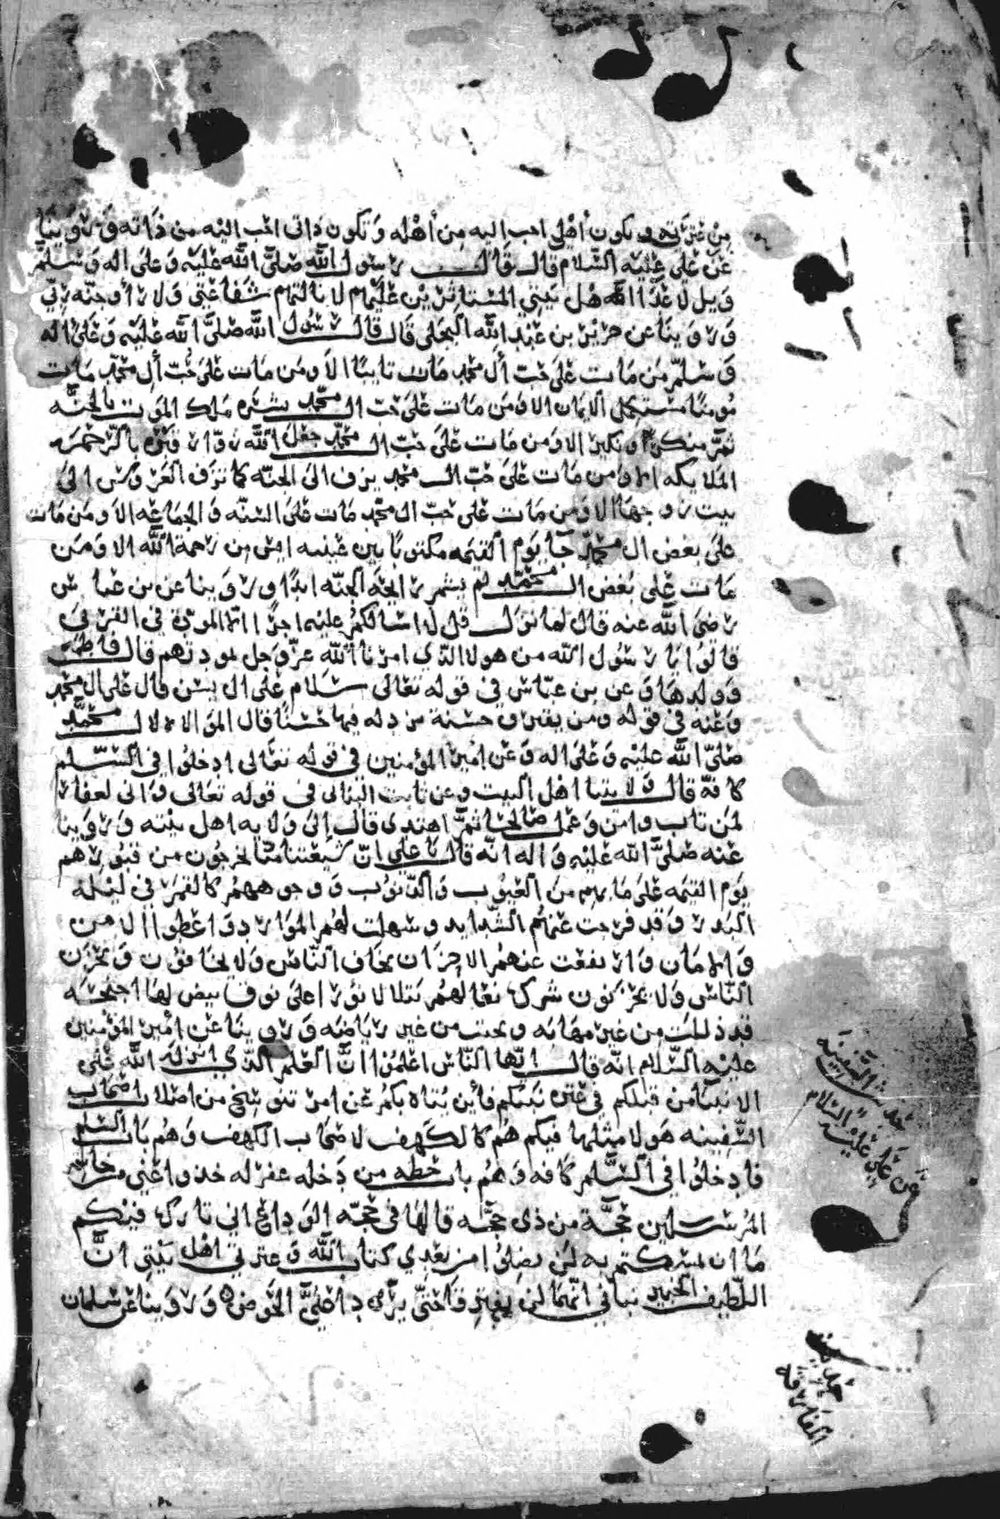 من عترته وتكون أهلي احب اليه من أهله وتكون ذاتي احب اليه من ذاته وروينا
عن علي عليه السلام قال قال رسول الله صلى الله عليه وعلى اله وسلم
ويل لاعدا اهل بيتي المستاثرين عليهم لا نالتهم شفاعتي ولا راو جنة ربي
وروينا عن جرير بن عبد الله البجلي قال قال رسول الله صلى الله عليه وعلى اله
وسلم من مات على حب أل محمد مات تايبا الا ومن مات على حب أل محمد مات
مومنا مستكمل الايمان الا ومن مات على حب ال محمد بشره ملك الموت بالجنه
ثم منكر ونكير الا ومن مات على حب ال محمد جعل الله زوار قبره بالرحمه
الملايكه الا ومن مات على حب ال محمد يزف الى الجنه كما تزف العروس الى
بيت زوجها الا ومن مات على حب ال محمد مات على السنه والجماعه الا ومن مات
على بغض ال محمد جا يوم القيمه مكتوبا بين عينيه ايس من رحمة الله الا ومن
مات على بغض ال محمد لم يشم رايحة الجنه ابدا وروينا عن بن عباس
رضي الله عنه قال لما نزل قل لا اسالكم عليه اجرا الا المودة في القربى
قالوا يا رسول الله من هولا الذي امرنا الله عز وجل بمودتهم قال فاطمه
وولدها وعن بن عباس في قوله تعالى سلام على ال يسن قال على ال محمد
وعنه في قوله ومن يقترف حسنة نزد له فيها حسنا قال الموالاه لال محمد
صلى الله عليه وعلى اله وعن امير المؤمنين في قوله تعالى ادخلوا في السلم
كافة قال ولايتنا اهل البيت وعن ثابت البناني في قوله تعالى واني لغفار
لمن تاب وامن وعمل صالحا ثم اهتدى قال الى ولايه اهل بيته وروينا
عنه صلى الله عليه واله انه قال يا علي ان شيعتنا يخرجون من قبورهم
يوم القيمه على ما بهم من العيوب والذنوب ووجوههم كالقمر في ليله
البدر وقد فرجت عنهم الشدايد وسهلت لهم الموارد واعطوا الامن
والامان وارتفعت عنهم الاحزان يخاف الناس ولا يخافون ويحزن
الناس ولا يحزنون شرك نعالهم تتلالا نورا على نوق بيض لها اجنحه
قد ذللت من غير مهانه ونجبت من غير رياضه وروينا عن امير المؤمنين
عليه السلام انه قال ايها الناس اعلموا ان العلم الذي انزله الله على
الانبيا من قبلكم في عتره نبيكم فأين يتاه بكم عن امر تنوسخ من اصلاب اصحاب
السفينه هولا مثلها فيكم وهم كالكهف لاصحاب الكهف وهم باب السلم
فادخلوا في السلم كافه وهم باب حطه من دخله غفر له خذوا عني عن خاتم
المرسلين حجة من ذي حجه قالها في حجه الوداع اني تارك فيكم
ما ان تمسكتم به لن تضلوا من بعدي كتاب الله وعترتي اهل بيتي ان
اللطيف الخبير نباني انهما لن يفترقا حتى يردا علي الحوض وروينا عن سلمان
حديث السفينه
عن علي عليه السلام
حديث